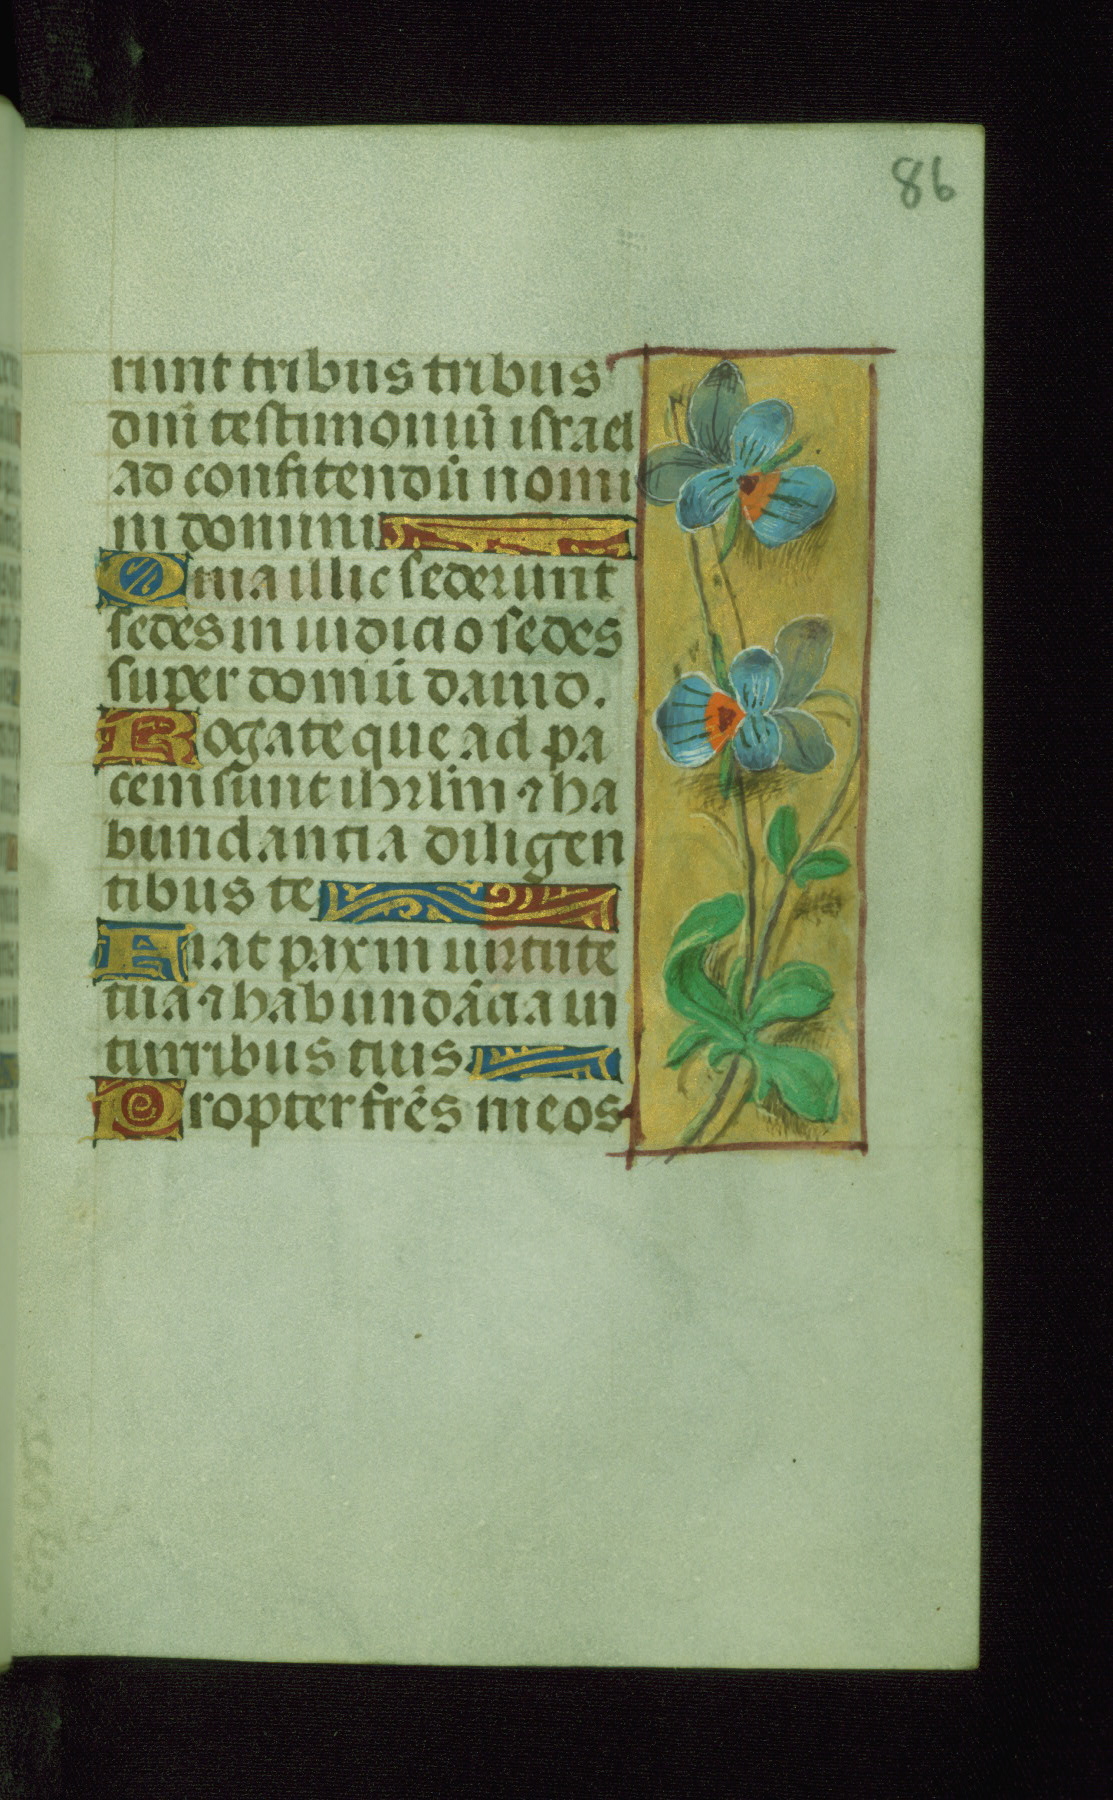 86
runt tribus tribus
dn̄i testimoniū israel
ad confitendū nomi
ni domini
Quia illic sederunt
sedes in iudicio sedes
super domū dauid.
Rogate que ad pa
cem sunt ihrl̄m ⁊ ha
bundantia diligen
tibus te
Fiat pax in uirtute
tua ⁊ habundācia in
turribus tuis
Propter fr̄es meos